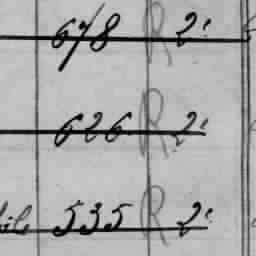 678 R 2e
626 R 2e
bile 535 R 2e